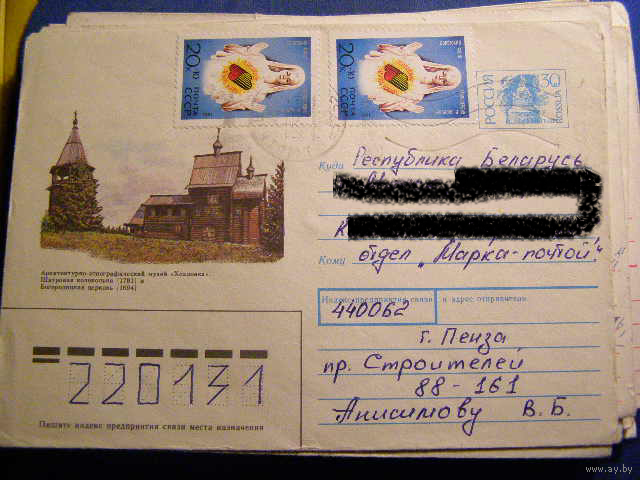 20 к. ПОЧТА СССР
20 к. ПОЧТА СССР
РОССИЯ 30
ROSSIJA
Куда Республика Беларусь
К
Кому отдел „Марка-почтой".
Архитектурно-этнографический музей «Хохловка».
Шатровая колокольня (1781) и
Богородицкая церковь (1694)
Индекс предприятия связи и адрес отправителя
440062
г. Пенза
пр. Строителей
88-161
Анисимову В. Б.
220131
Пишите индекс предприятия связи места назначения
www.ay.by